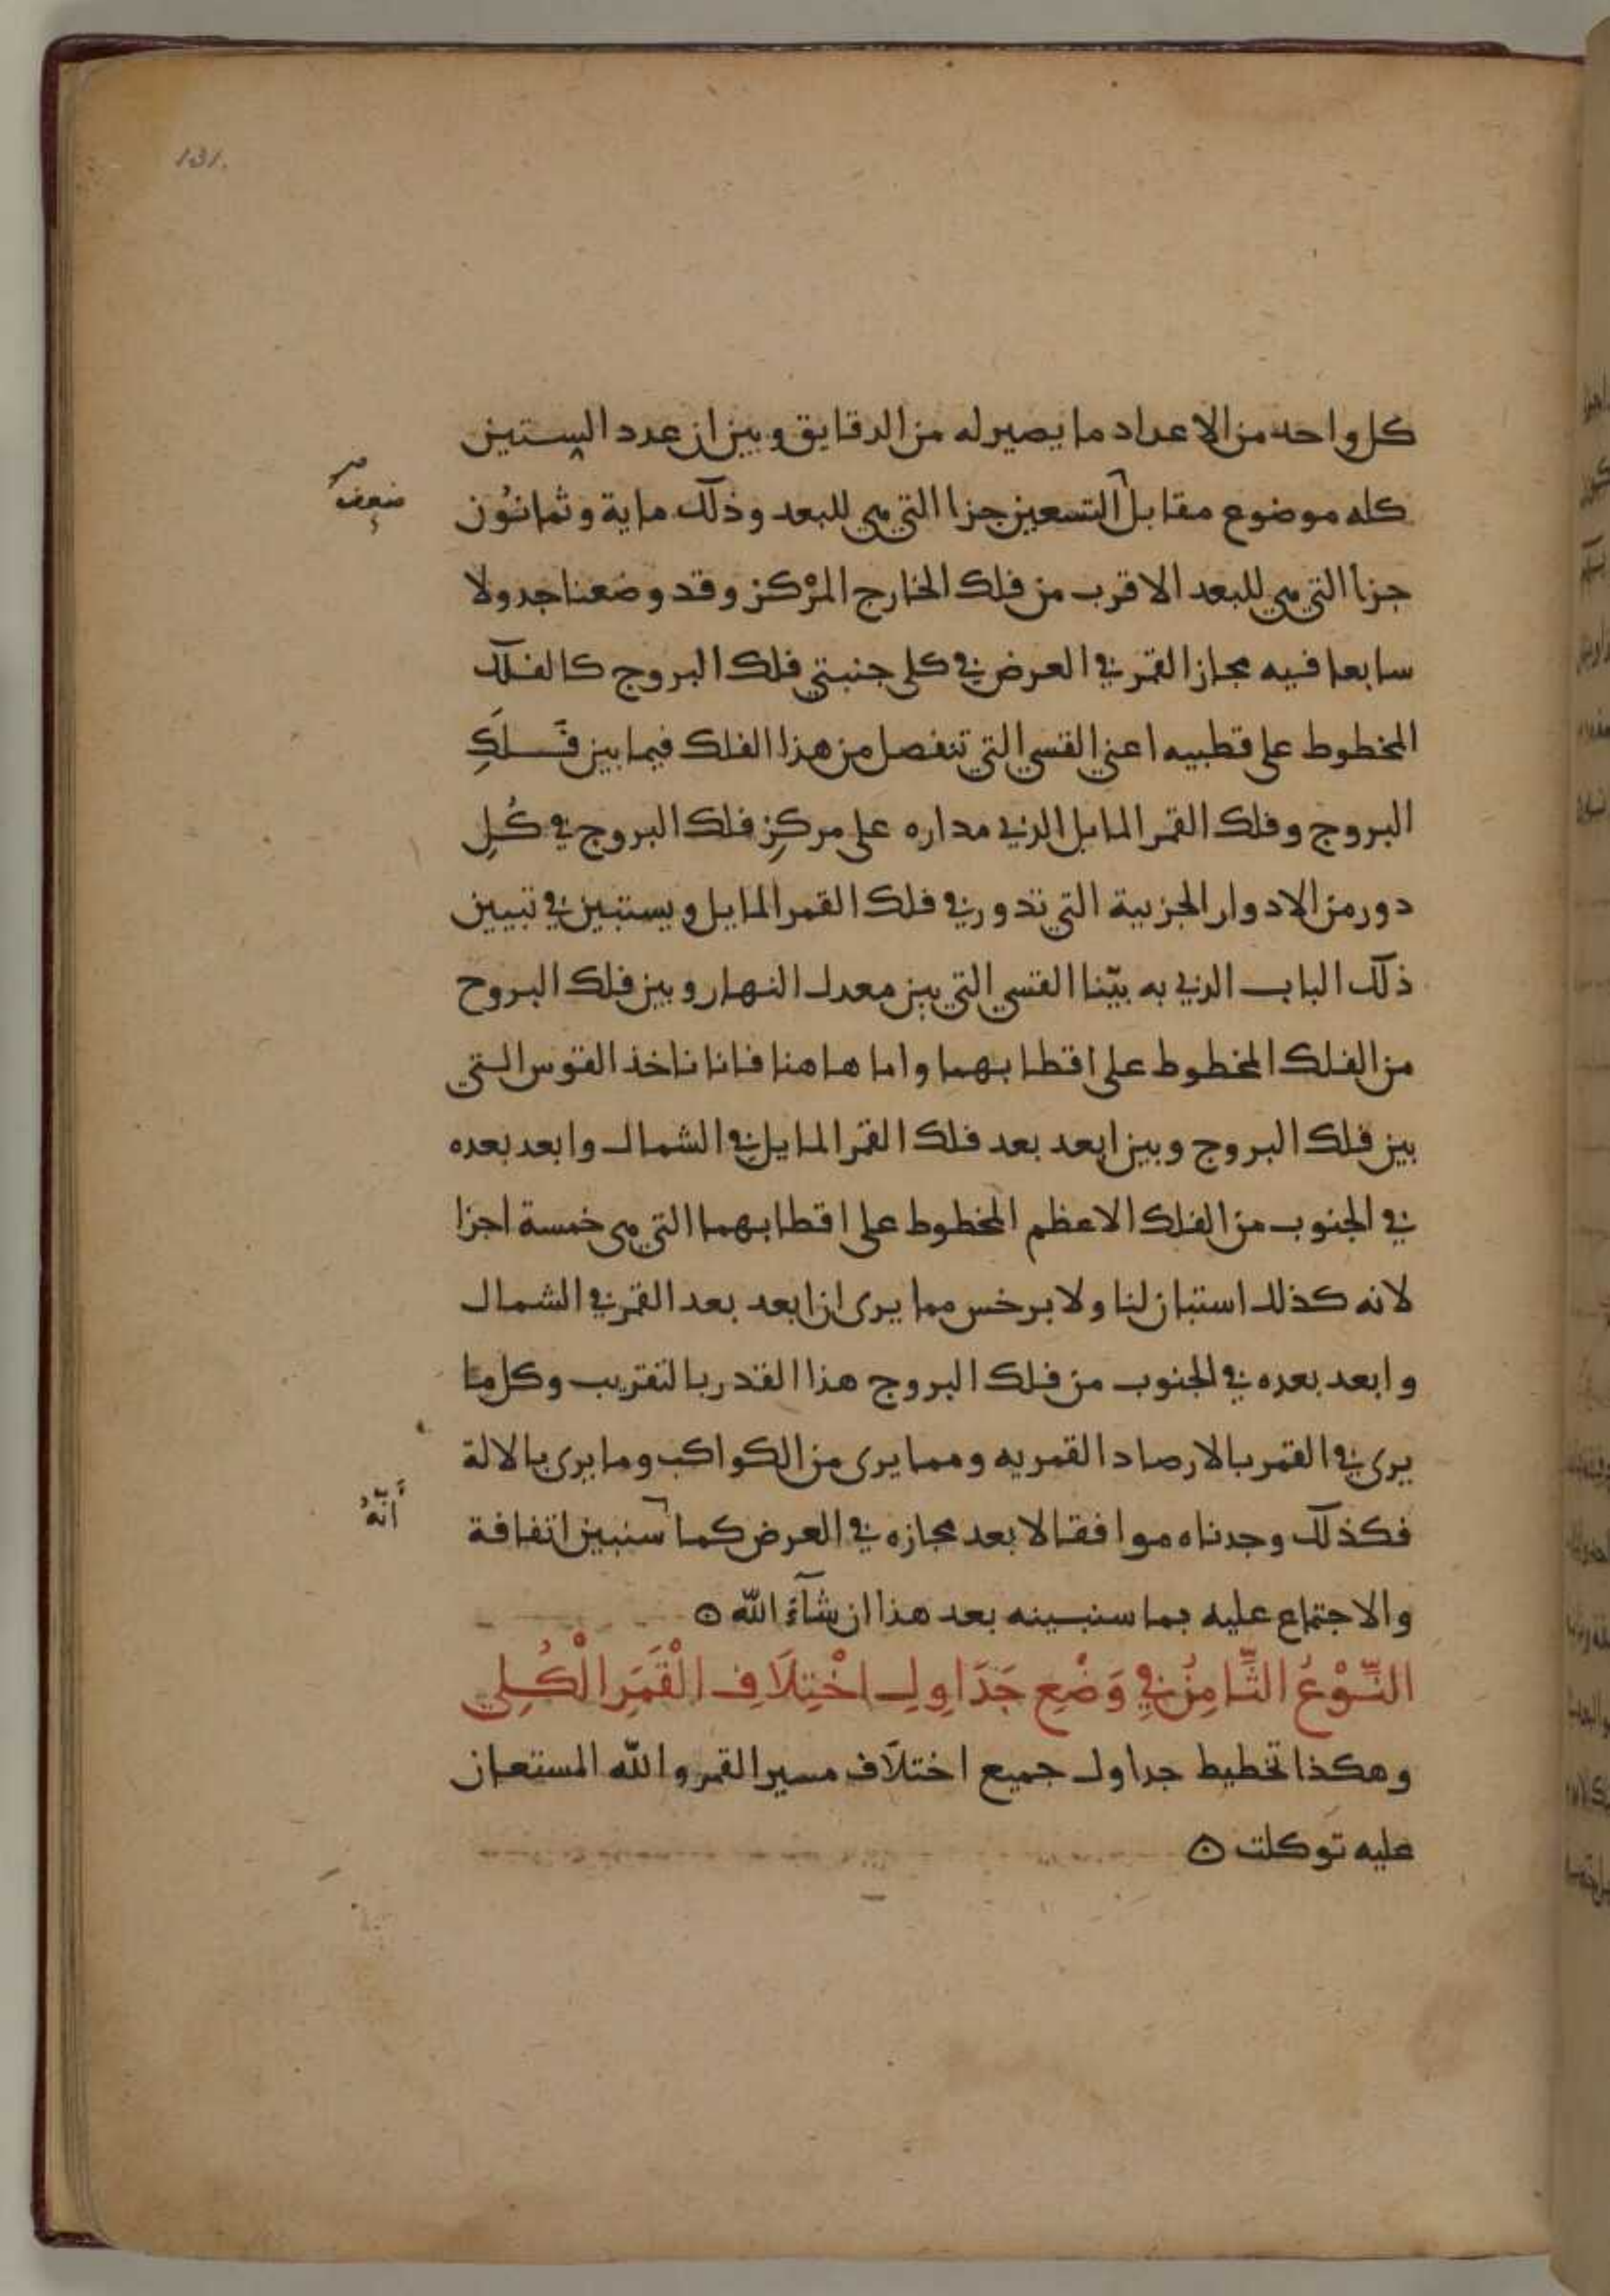 131.
كل واحد من الاعداد ما يصير له من الدقايق وبين ان عدد الستين
كله موضوع مقابل التسعين جزا التي هي للبعد وذلك ماية وثمانون
ضعف
جزا التي هي للبعد الاقرب من فلك الخارج المركز وقد وضعنا جدولا
سابعا فيه مجاز القمر في العرض في كلى جنبتي فلك البروج كالفلك
المخطوط على قطبيه اعني القسي التي تنفصل من هذا الفلك فيما بين فلك
البروج وفلك القمر المايل الذي مداره على مركز فلك البروج في كُلِ
دور من الادوار الجزيية التي تدور في فلك القمر المايل ويستبين في تبيين
ذلك الباب الذي به بيّنا القسي التي بين معدل النهار وبين فلك البروح
من الفلك المخطوط على اقطابهما واما هاهنا فانا ناخذ القوس التي
بين فلك البروج وبين ابعد بعد فلك القمر المايل في الشمال وابعد بعده
في الجنوب من الفلك الاعظم المخطوط على اقطابهما التي هي خمسة اجزا
لانه كذلك استبان لنا ولابرخس مما يرى ان ابعد بعد القمر في الشمال
وابعد بعده في الجنوب من فلك البروج هذا القدر بالتقريب وكل ما
يرى في القمر بالارصاد القمريه ومما يرى من الكواكب وما يرى بالالة
فكذلك وجدناه موافقا لابعد مجازه في العرض كما سنبين اتفاقة
أنّهُ
والاجتماع عليه بما سنبينه بعد هذا ان شآءَ الله ه
النَّوْعُ الثَّامِنُ فِي وَضْعِ جَدَاوِلِ اخْتِلَافِ الْقَمَرِ الْكُلِي
وهكذا تخطيط جداول جميع اختلاف مسير القمر والله المستعان
عليه توكلت ه